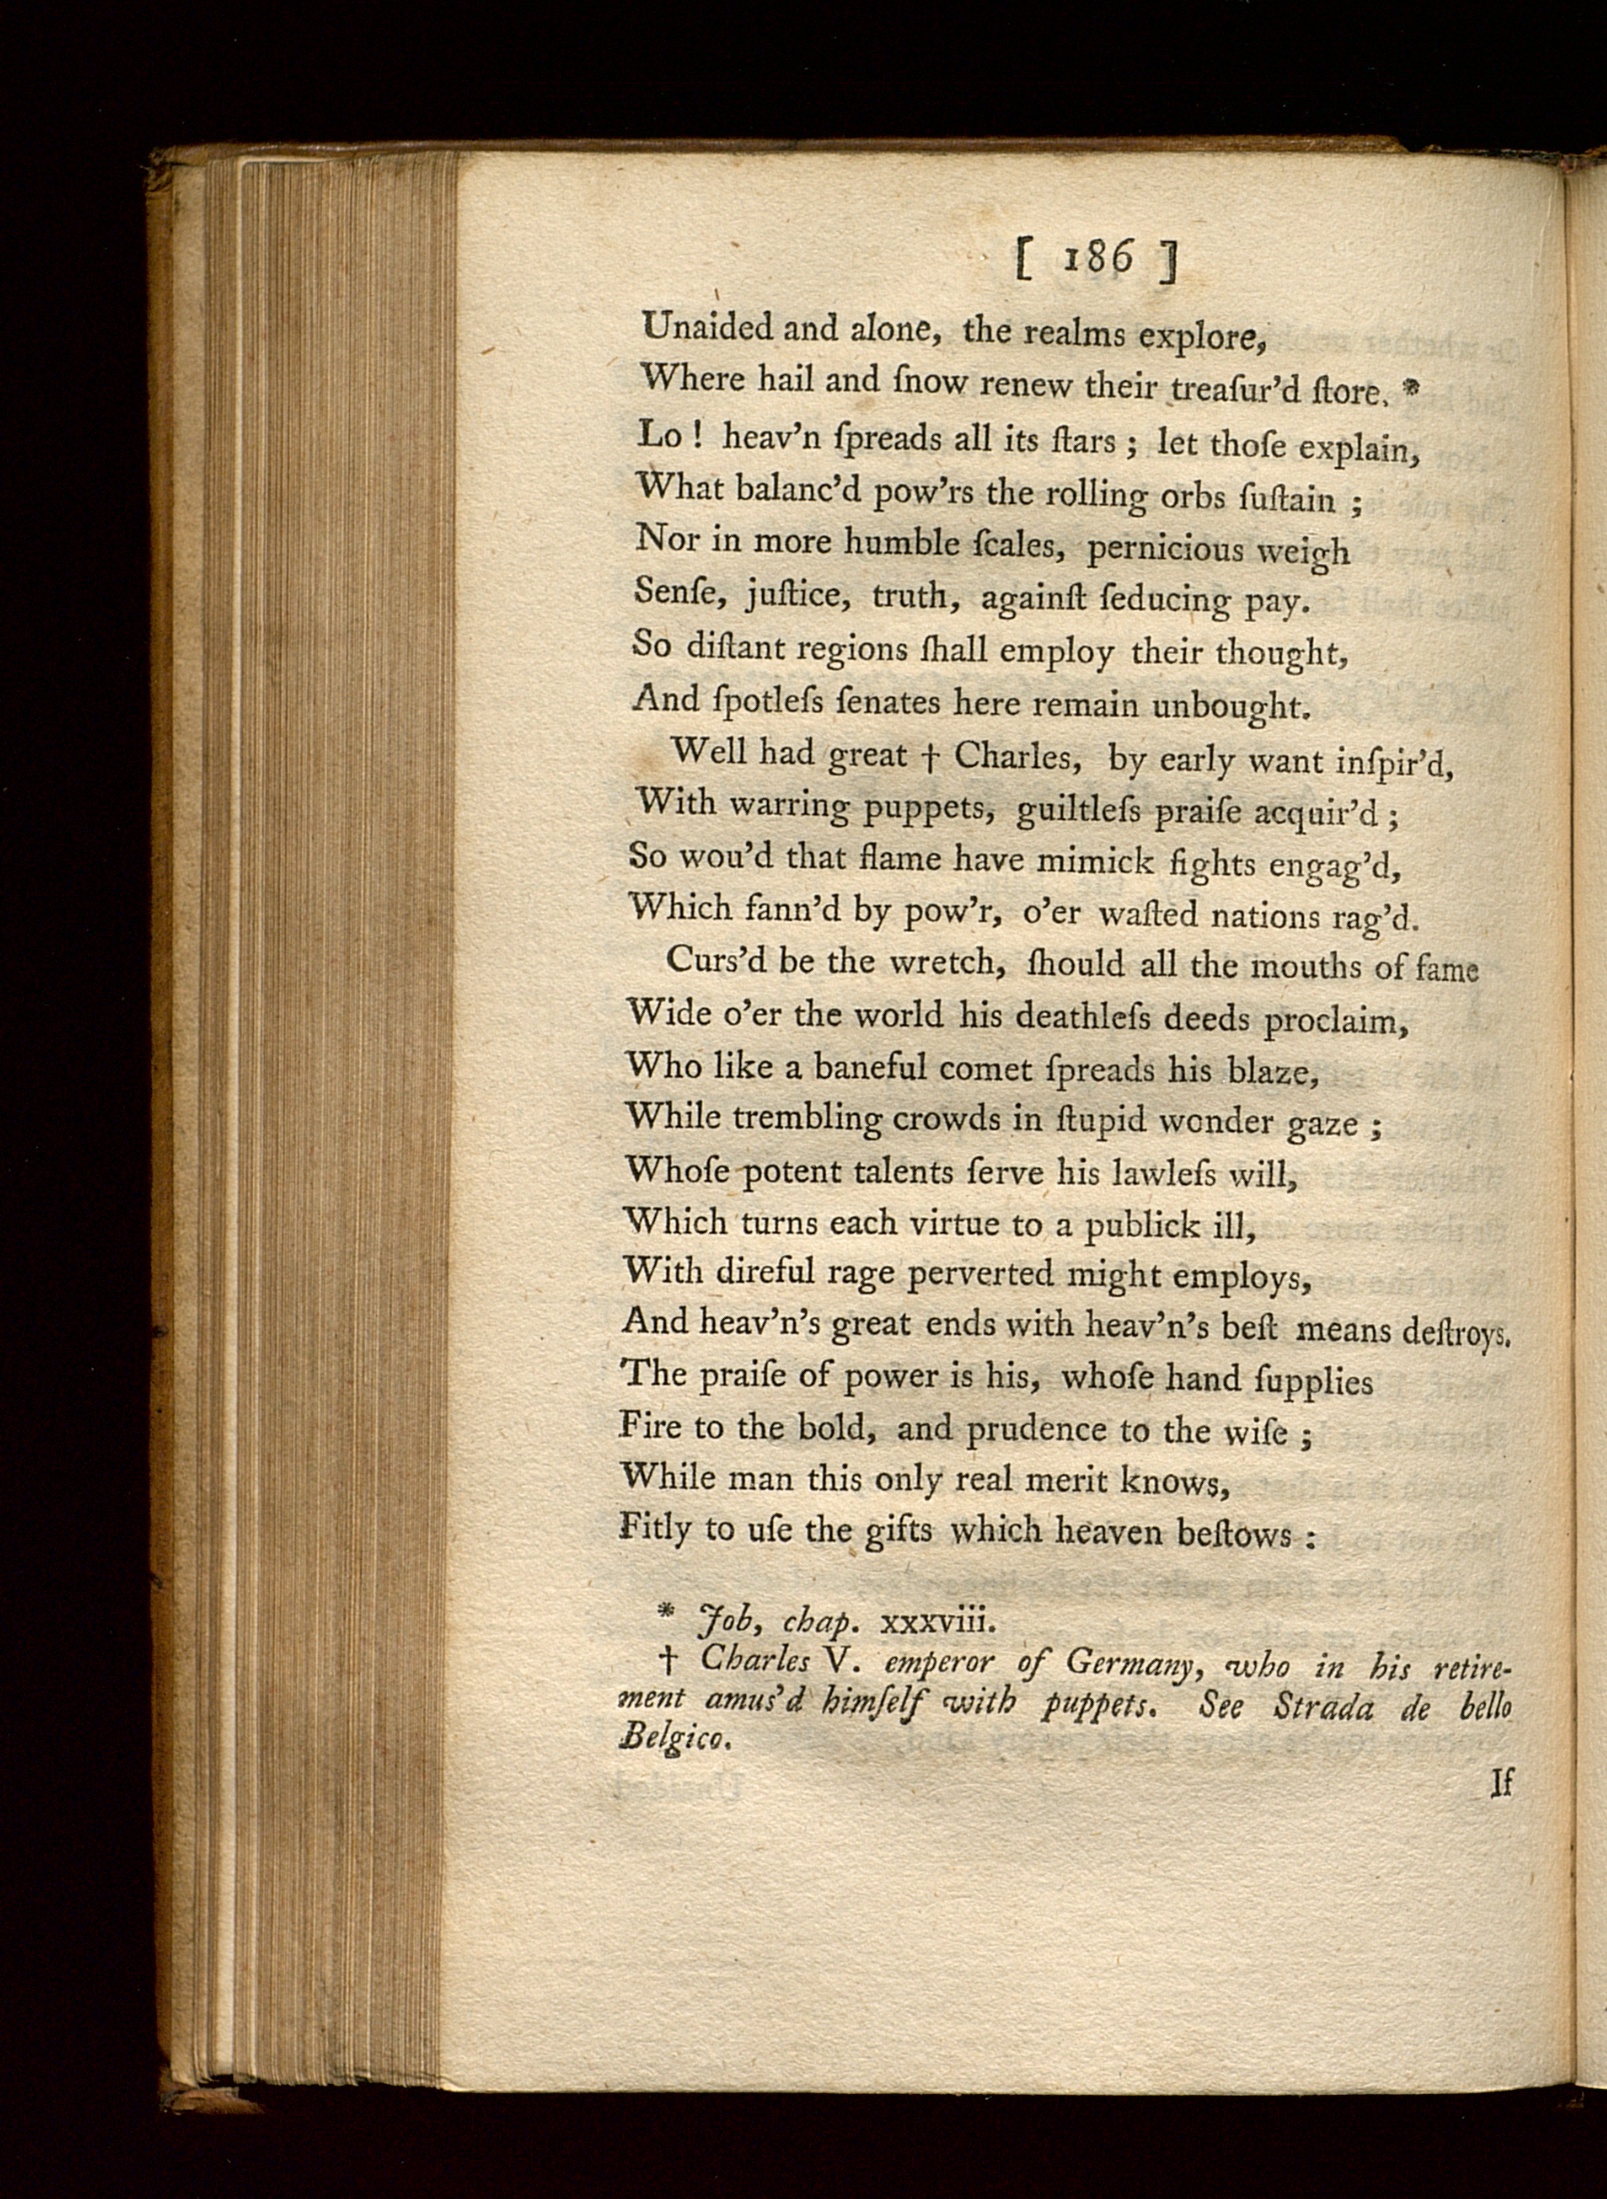 [ 186 ]
Unaided and alone, the realms explore,
Where hail and ſnow renew their treaſur’d ſtore. *
Lo ! heav’n ſpreads all its ſtars ; let thoſe explain,
What balanc’d pow’rs the rolling orbs ſuſtain ;
Nor in more humble ſcales, pernicious weigh
Senſe, juſtice, truth, againſt ſeducing pay.
So diſtant regions ſhall employ their thought,
And ſpotleſs ſenates here remain unbought.
Well had great † Charles, by early want inſpir’d,
With warring puppets, guiltleſs praiſe acquir’d ;
So wou’d that flame have mimick fights engag’d,
Which fann’d by pow’r, o’er waſted nations rag’d.
Curs’d be the wretch, ſhould all the mouths of fame
Wide o’er the world his deathleſs deeds proclaim,
Who like a baneful comet ſpreads his blaze,
While trembling crowds in ſtupid wonder gaze ;
Whoſe potent talents ſerve his lawleſs will,
Which turns each virtue to a publick ill,
With direful rage perverted might employs,
And heav’n’s great ends with heav’n’s beſt means deſtroys.
The praiſe of power is his, whoſe hand ſupplies
Fire to the bold, and prudence to the wiſe ;
While man this only real merit knows,
Fitly to uſe the gifts which heaven beſtows :
* Job, chap. xxxviii.
† Charles V. emperor of Germany, who in his retire-
ment amus’d himſelf with puppets. See Strada de bello
Belgico.
If